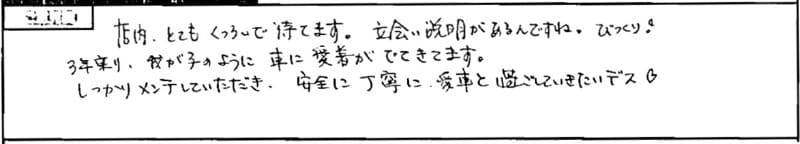 店内、とても くつろいで 待てます。 立会い説明があるんですね。 びっくり！
3年乗り、我が子のように 車に 愛着が でてきてます。
しっかりメンテしていただき、 安全に 丁寧に、愛車と 過ごしていきたいデス